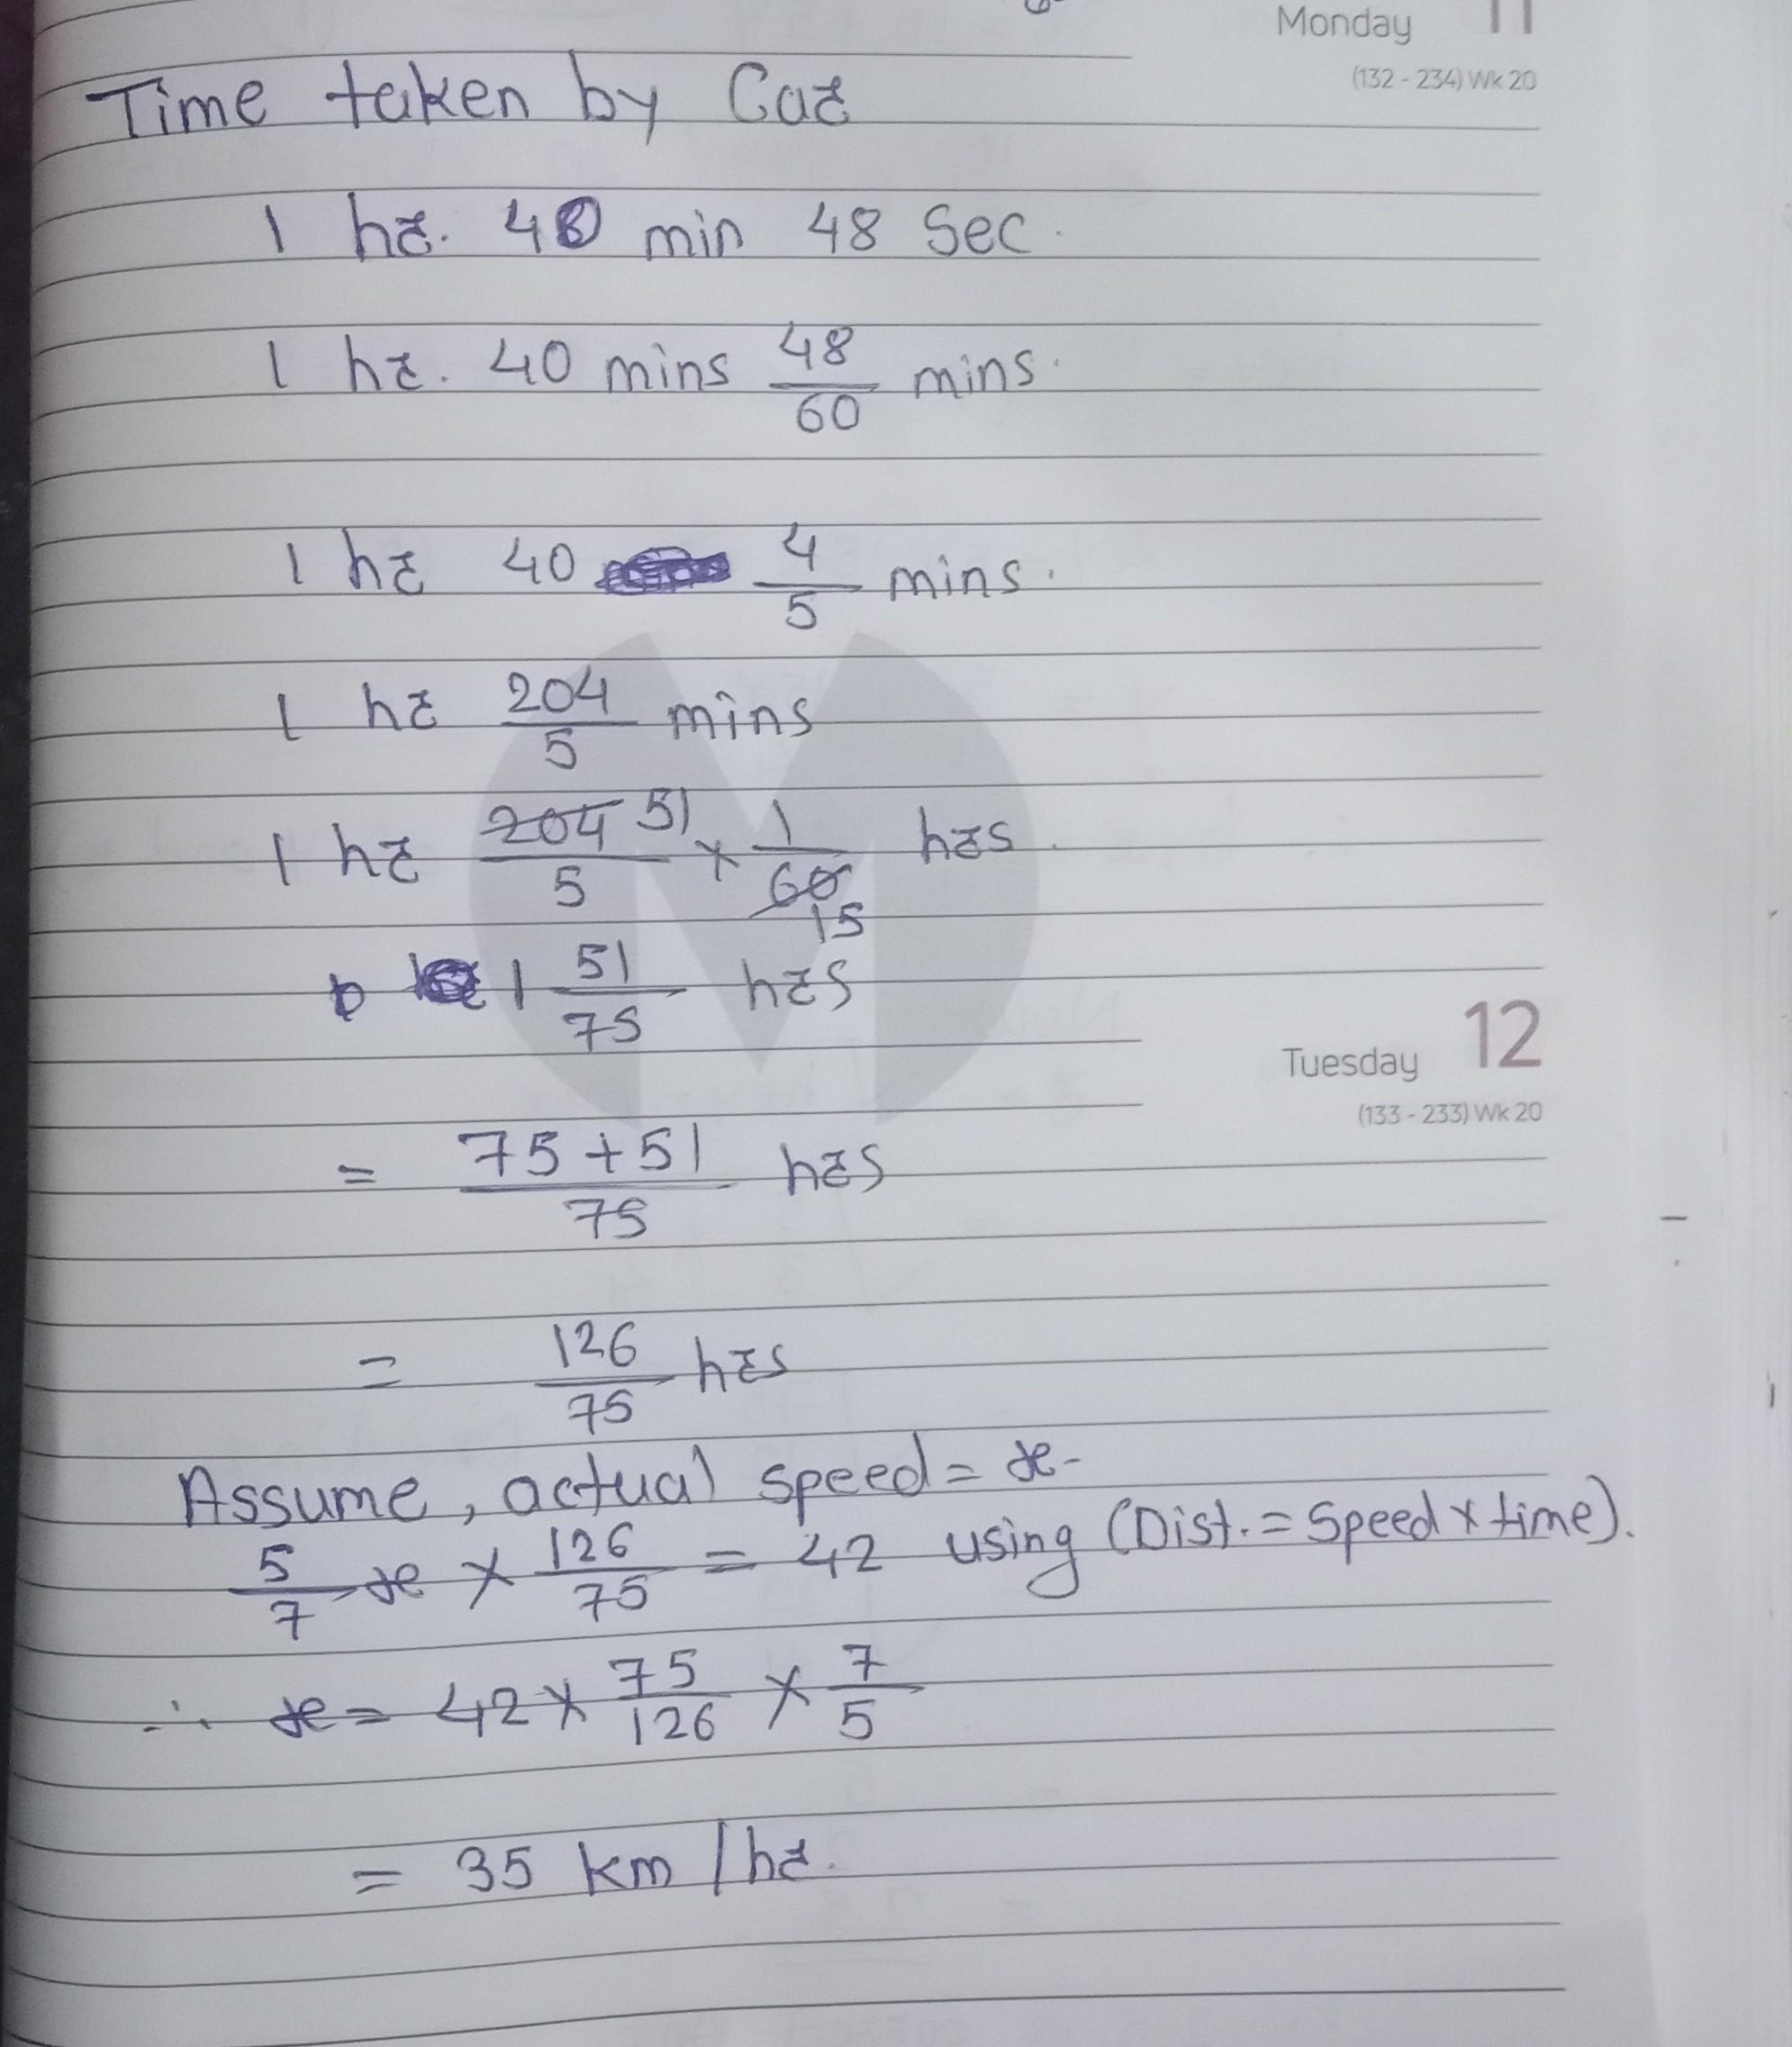 Monday 11
(132 - 234) Wk 20
Time taken by Car
1 hr. 40 min 48 Sec.
1 hr. 40 mins 48/60 mins.
1 hr 40 4/5 mins.
1 hr 204/5 mins
1 hr 204/5 51 × 1/60 15 hrs.
1 51/75 hrs
Tuesday 12
(133 - 233) Wk 20
= 75+51/75 hrs
= 126/75 hrs
Assume, actual speed = x-
5/7 x × 126/75 = 42 using (Dist. = Speed × time).
∴ x = 42 × 75/126 × 7/5
= 35 km/hr.